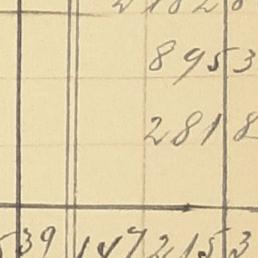 8953
2818
39 1472153